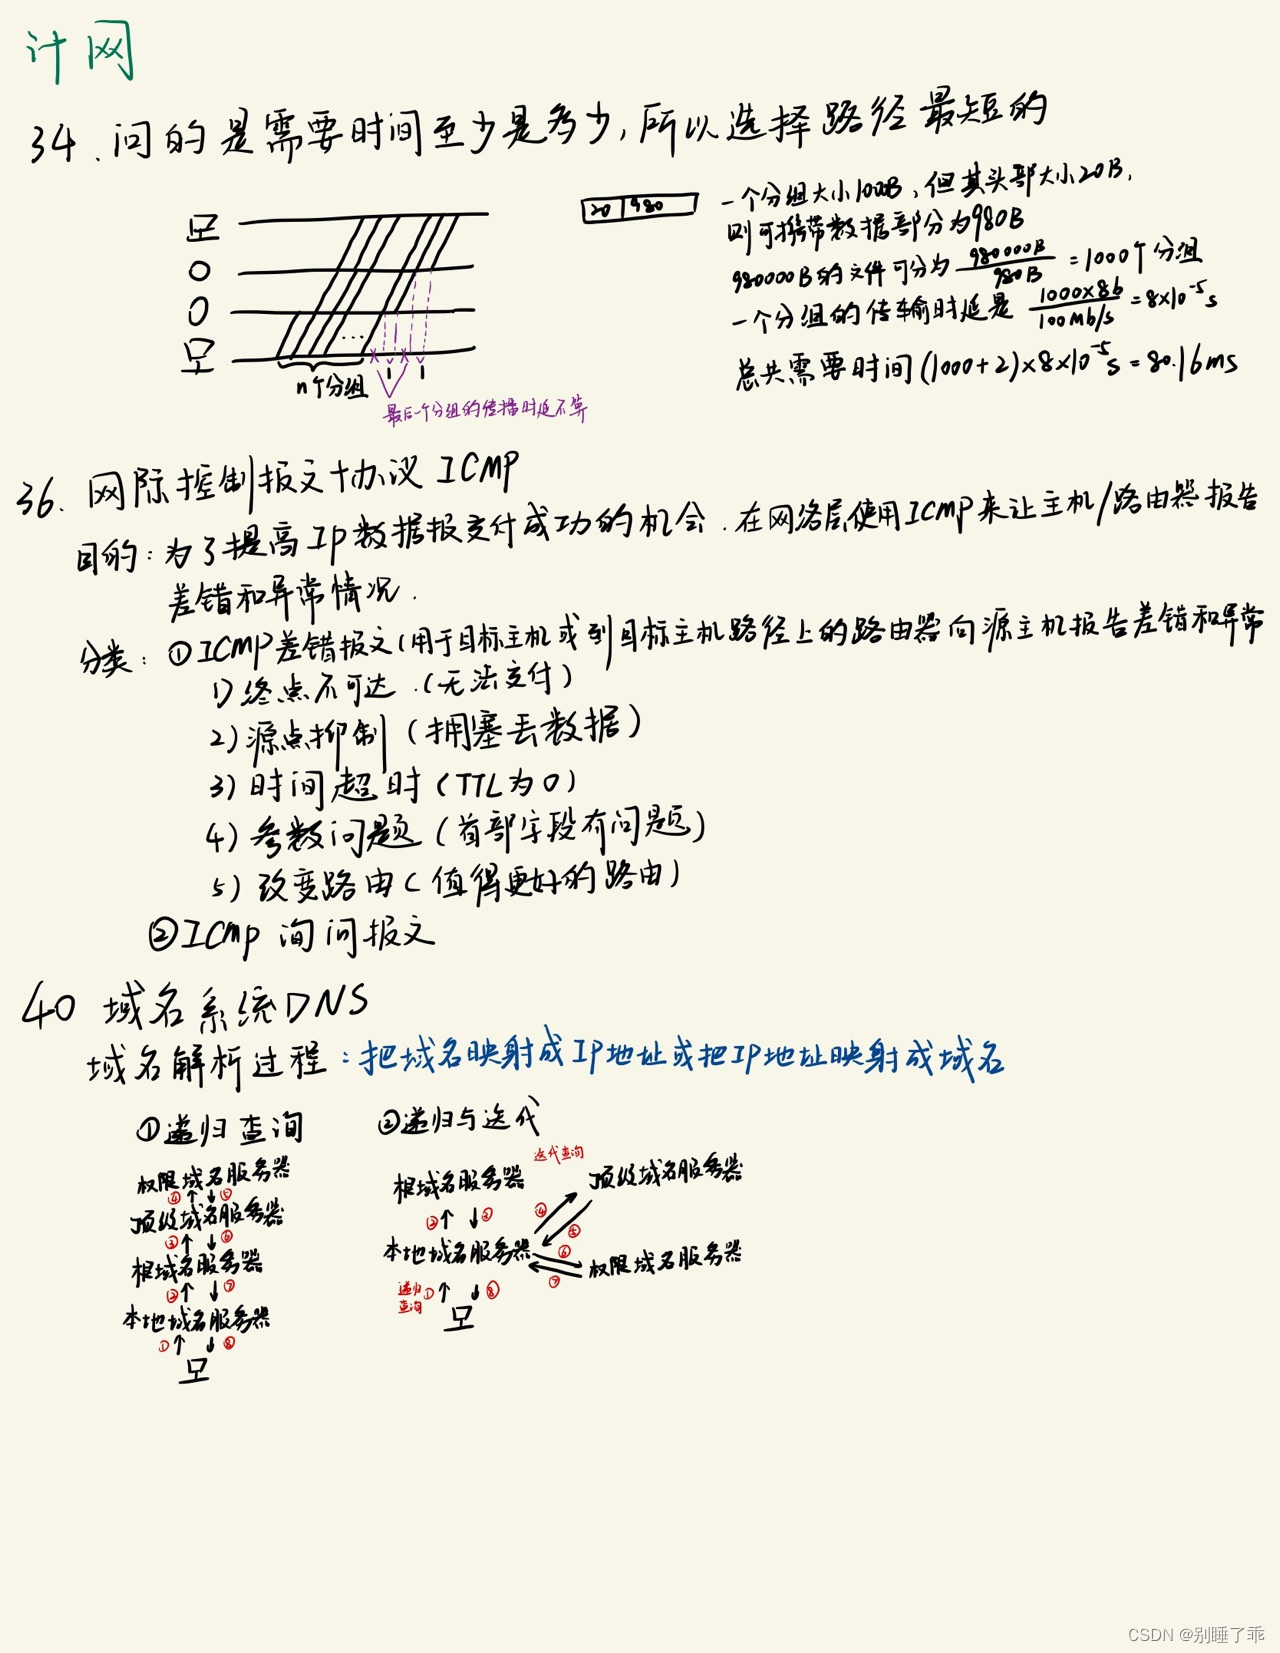 计网
34. 问的是需要时间至少是多少,所以选择路径最短的
20 980
一个分组大小1000B,但其头部大小20B,
则可携带数据部分为980B
980000B的文件可分为 980000B/980B = 1000个分组
一个分组的传输时延是 1000×8b/100Mb/s = 8×10⁻⁵s
总共需要时间(1000+2)×8×10⁻⁵s = 80.16ms
...
n个分组 1 1
最后一个分组的传播时延不算
36. 网际控制报文协议ICMP
目的:为了提高IP数据报交付成功的机会.在网络层使用ICMP来让主机/路由器报告
差错和异常情况.
分类:①ICMP差错报文(用于目标主机或到目标主机路径上的路由器向源主机报告差错和异常
1)终点不可达.(无法交付)
2)源点抑制(拥塞丢数据)
3)时间超时(TTL为0)
4)参数问题(首部字段有问题)
5)改变路由(值得更好的路由)
②ICMP 询问报文
40 域名系统DNS
域名解析过程:把域名映射成IP地址或把IP地址映射成域名
①递归查询
权限域名服务器
④ ⑤
顶级域名服务器
③ ⑥
根域名服务器
② ⑦
本地域名服务器
① ⑧
②递归与迭代
迭代查询
根域名服务器 顶级域名服务器
② ③ ④ ⑤
本地域名服务器 ⑥ ⑦ 权限域名服务器
递归 ① ⑧
查询
CSDN @别睡了乖